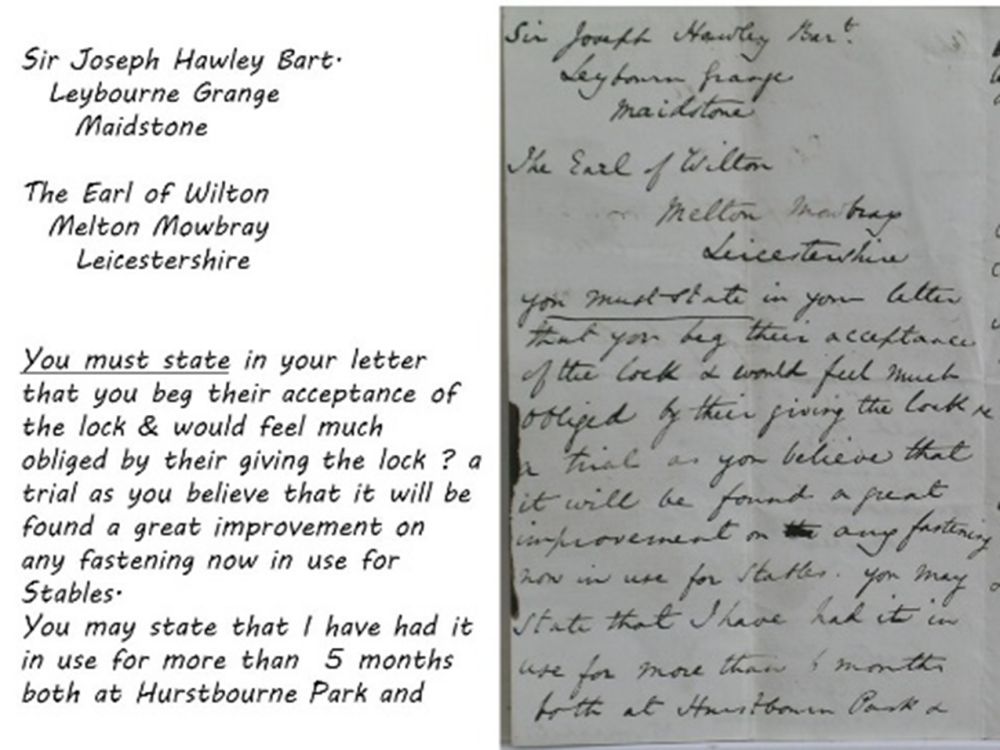 Sir Joseph Hawley Bart.
Leybourne Grange
Maidstone
The Earl of Wilton
Melton Mowbray
Leicestershire
You must state in your letter
that you beg their acceptance of
the lock & would feel much
obliged by their giving the lock ? a
trial as you believe that it will be
found a great improvement on
any fastening now in use for
Stables.
You may state that I have had it
in use for more than 5 months
both at Hurstbourne Park and
Sir Joseph Hawley Bart.
Leybourn Grange
Maidstone
The Earl of Wilton
Melton Mowbray
Leicestershire
you must state in your letter
that you beg their acceptance
of the lock & would feel much
obliged by their giving the lock
a trial as you believe that
it will be found a great
improvement on any fastening
now in use for Stables. you may
state that I have had it in
use for more than months
both at Hurstbourn Park &